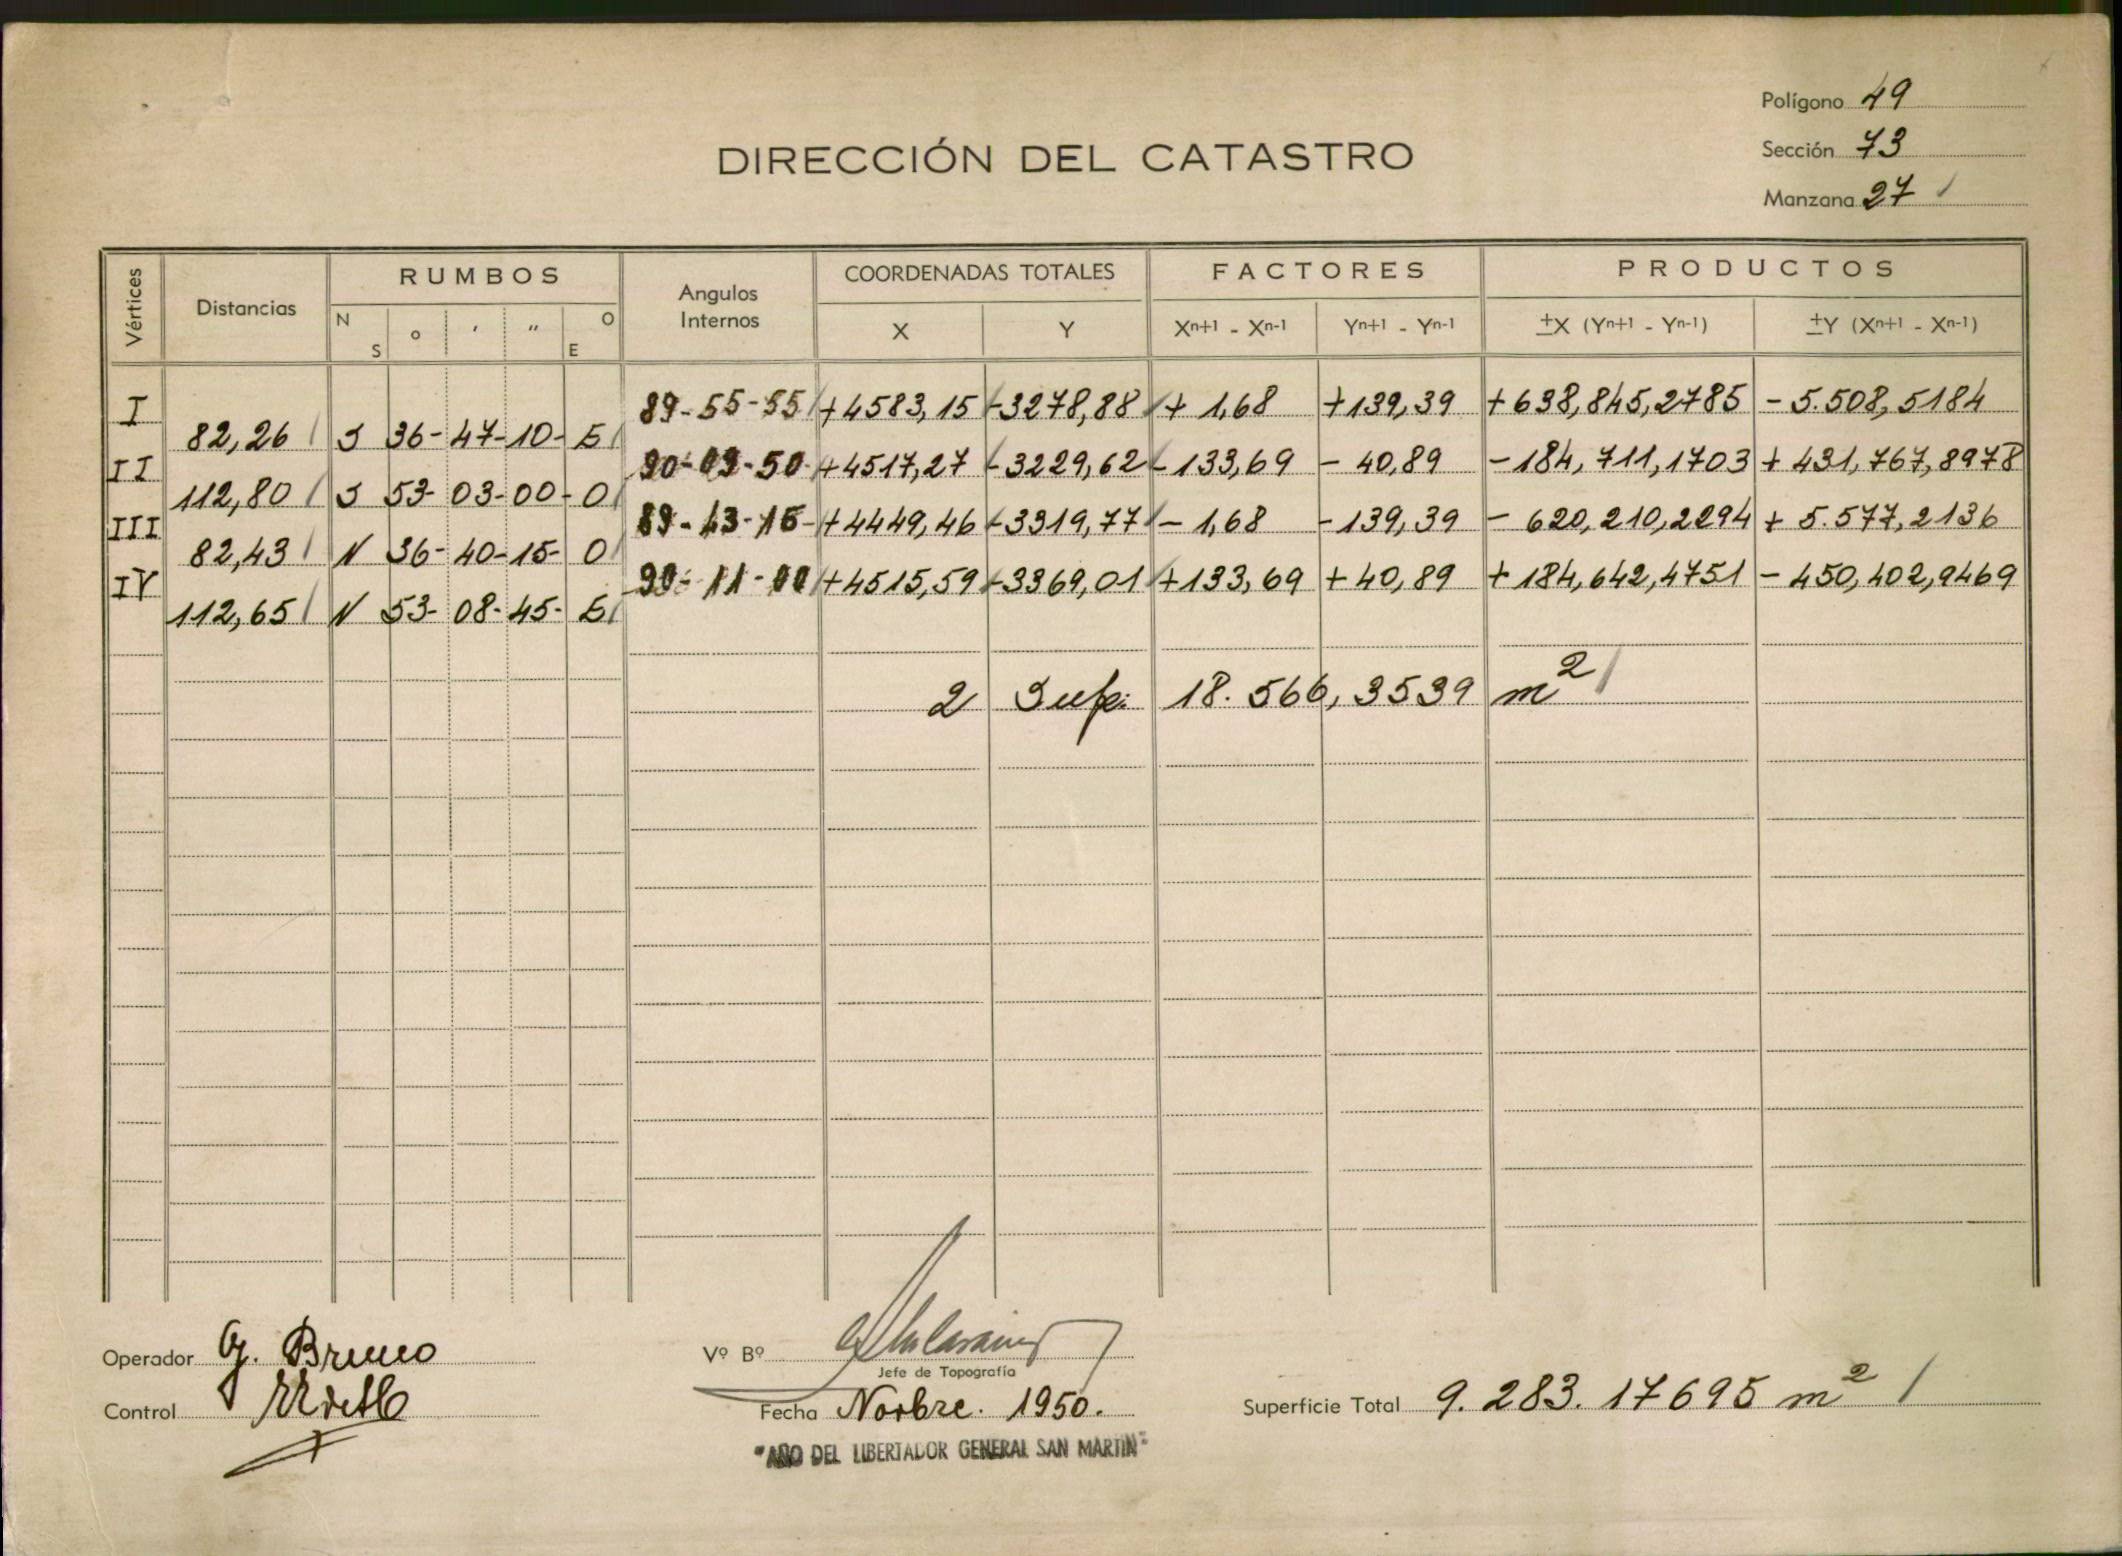 Polígono 49
Sección 73
Manzana 27
DIRECCIÓN DEL CATASTRO
Vértices Distancias RUMBOS Angulos Internos COORDENADAS TOTALES FACTORES PRODUCTOS
N S o ′ ″ O E X Y Xn+1 - Xn-1 Yn+1 - Yn-1 ±X (Yn+1 - Yn-1) ±Y (Xn+1 - Xn-1)
I 89-55-55 +4583,15 -3278,88 + 1,68 +139,39 +638,845,2785 - 5.508,5184
82,26 S 36-47-10- E
II 90-09-50 +4517,27 -3229,62 -133,69 - 40,89 -184,711,1703 + 431,767,8978
112,80 S 53-03-00-O
III 89-43-15 +4449,46 -3319,77 - 1,68 -139,39 - 620,210,2294 + 5.577,2136
82,43 N 36-40-15- O
IV 90-11-00 +4515,59 -3369,01 +133,69 + 40,89 + 184,642,4751 - 450,402,9469
112,65 N 53-08-45- E
2 Sup: 18.566,3539 m2
Operador G. Bruno
Control
Vº Bº
Jefe de Topografía
Fecha Novbre. 1950.
Superficie Total 9.283.17695 m2
"AÑO DEL LIBERTADOR GENERAL SAN MARTIN"